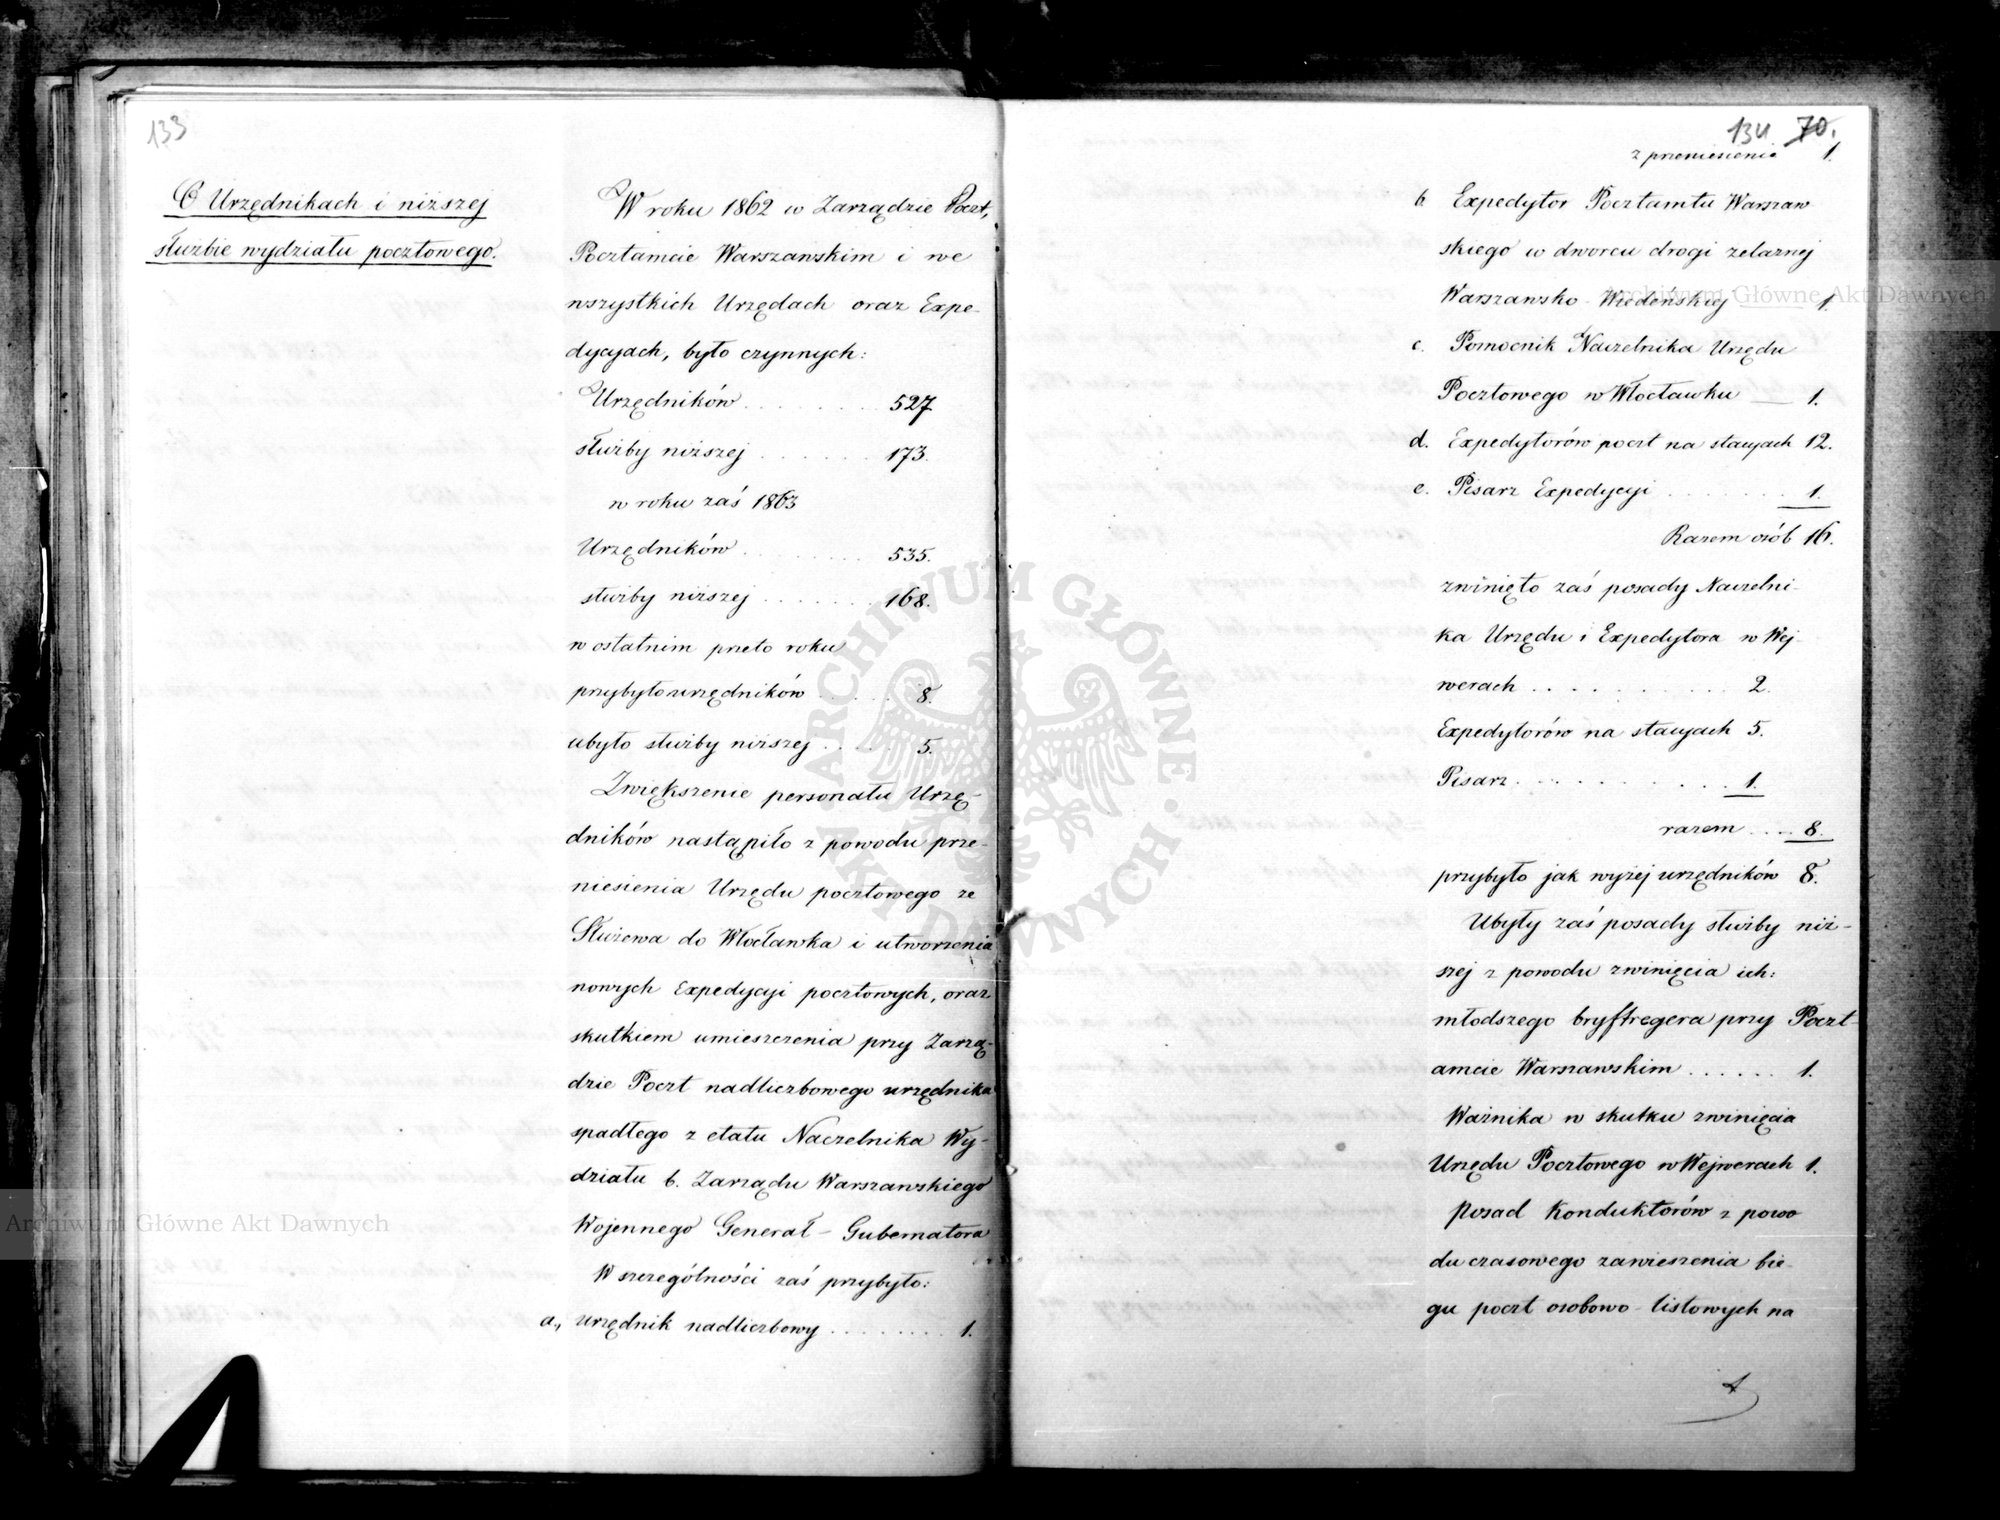 133
O Urzędnikach i niższej
służbie wydziału pocztowego.
W roku 1862 w Zarządzie Poczt,
Pocztamcie Warszawskim i we
wszystkich Urzędach oraz Expe-
dycyjach, było czynnych:
Urzędników . . . . . . . . 527
służby niższej . . . . . . . 173.
w roku zaś 1863
Urzędników . . . . . . . . 535.
służby niższej . . . . . . . 168.
w ostatnim przeto roku
przybyło urzędników . . . . . 8.
ubyło służby niższej . . . . . 5.
Zwiększenie personału Urzę-
dników nastąpiło z powodu prze-
niesienia Urzędu pocztowego ze
Służewa do Włocławka i utworzenia
nowych Expedycyi pocztowych, oraz
skutkiem umieszczenia przy Zarzą-
dzie Poczt nadliczbowego urzędnika
spadłego z etatu Naczelnika Wy-
działu b. Zarządu Warszawskiego
Wojennego Generał-Gubernatora
W szczególności zaś przybyło:
a., urzędnik nadliczbowy . . . . . . . . 1.
134 70.
z przeniesienia 1.
b Expedytor Pocztamtu Warszaw
skiego w dworcu drogi żelaznej
Warszawsko-Wiedeńskiej 1.
c. Pomocnik Naczelnika Urzędu
Pocztowego w Włocławku 1.
d. Expedytorów poczt na stacyach 12.
e. Pisarz Expedycyi . . . . . . . 1.
Razem osób 16.
zwinięto zaś posady Naczelni-
ka Urzędu i Expedytora w Wej-
werach . . . . . . . . . . 2.
Expedytorów na stacyach 5.
Pisarz . . . . . . . . . . 1.
razem . . . . 8.
przybyło jak wyżej urzędników 8.
Ubyły zaś posady służby niż-
szej z powodu zwinięcia ich:
młodszego bryftregera przy Poczt-
amcie Warszawskim . . . . . . 1.
Ważnika w skutku zwinięcia
Urzędu Pocztowego w Wejwerach 1.
posad Konduktorów z powo
du czasowego zawieszenia bie-
gu poczt osobowo-listowych na
ARCHIWUM GŁÓWNE AKT DAWNYCH
Archiwum Główne Akt Dawnych
Archiwum Główne Akt Dawnych